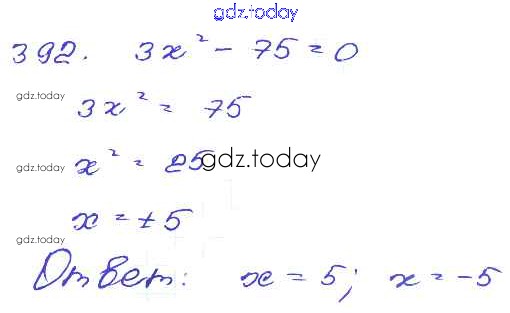 gdz.today
392. 3x² - 75 = 0
gdz.today
3x² = 75
gdz.today x² = 25 gdz.today
x = ±5
gdz.today
Ответ: x = 5; x = -5